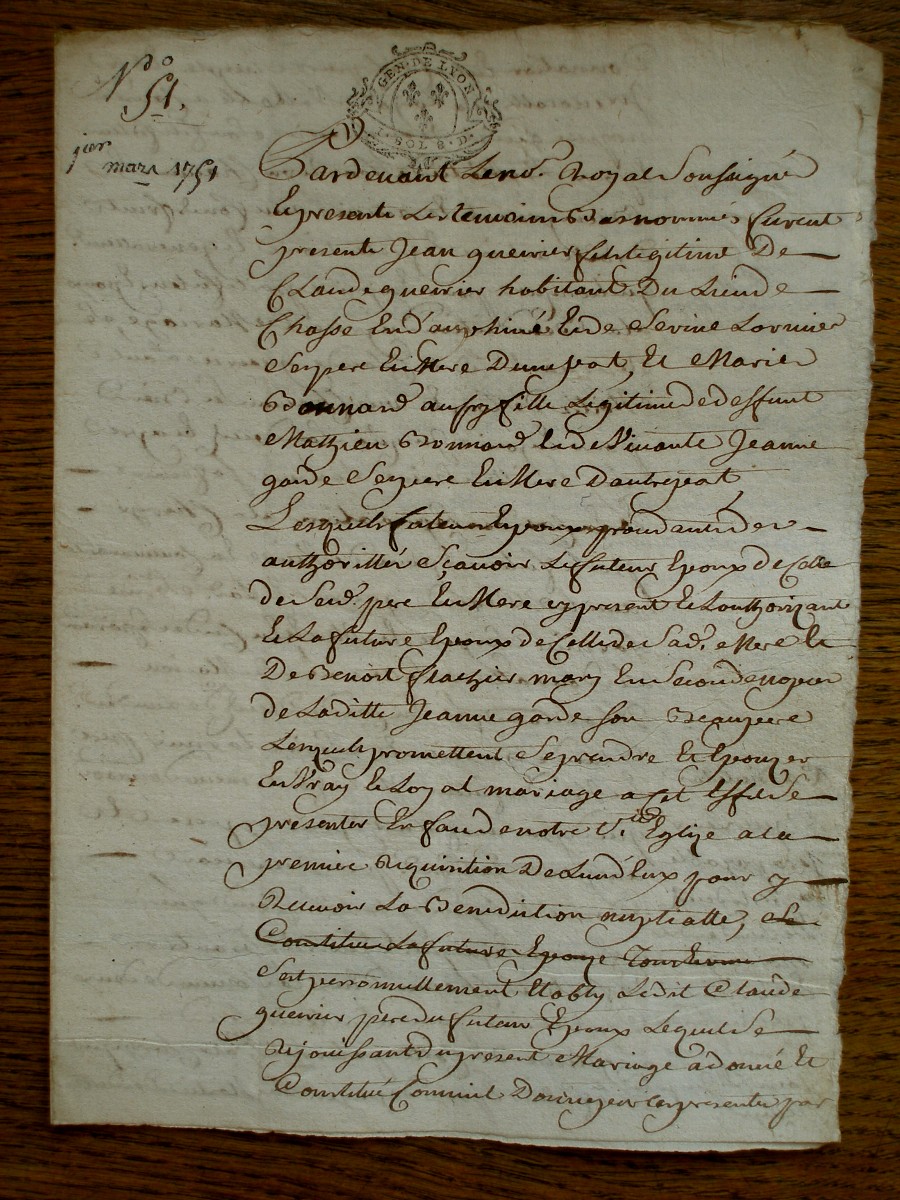 N.º
51.
GEN. DE LYON
1. SOL 8. D.
1ier
mars 1751
Pardevant Le no.re Royal Soussigné
Et presents Les temoins Bas nommés furent
presents Jean guerrier fils Legitime De
Claude guerrier habitant Du Lieu de
Chasse En dauphiné Et de
Ses pere Et Mere D'une part, Et Marie
Bonnard aussy fille Legitime de deffunt
Mathieu Bonnard Et de Vivante Jeanne
garde Ses pere Et Mere D'autre part
Lesquels futeurs Epoux procedants de
authorittés Sçavoir Le futeur Epoux de Celle
de Sesd. pere Et Mere cy present Et L'authorizant
Et La future Epouze de Celle de Sad. Mere Et
De Benoit flachier mary En Seconde noces
de Laditte Jeanne garde Son Beaupere
Lesquels promettent Se prendre Et Epouzer
En Vray Et Loyal mariage a Cet Effet Se
presenter En face de notre Ste Eglize a La
premiere Requisition De L'un d'Eux pour y
Recevoir La Benediction nuptialle,
Constitue La future Epouze
S'est personnellement Etably Ledit Claude
guerrier pere du futeur Epoux Lequel Se
Rejouissant du present Mariage a donné Et
Constitué Comme Donne par Ces presentes par